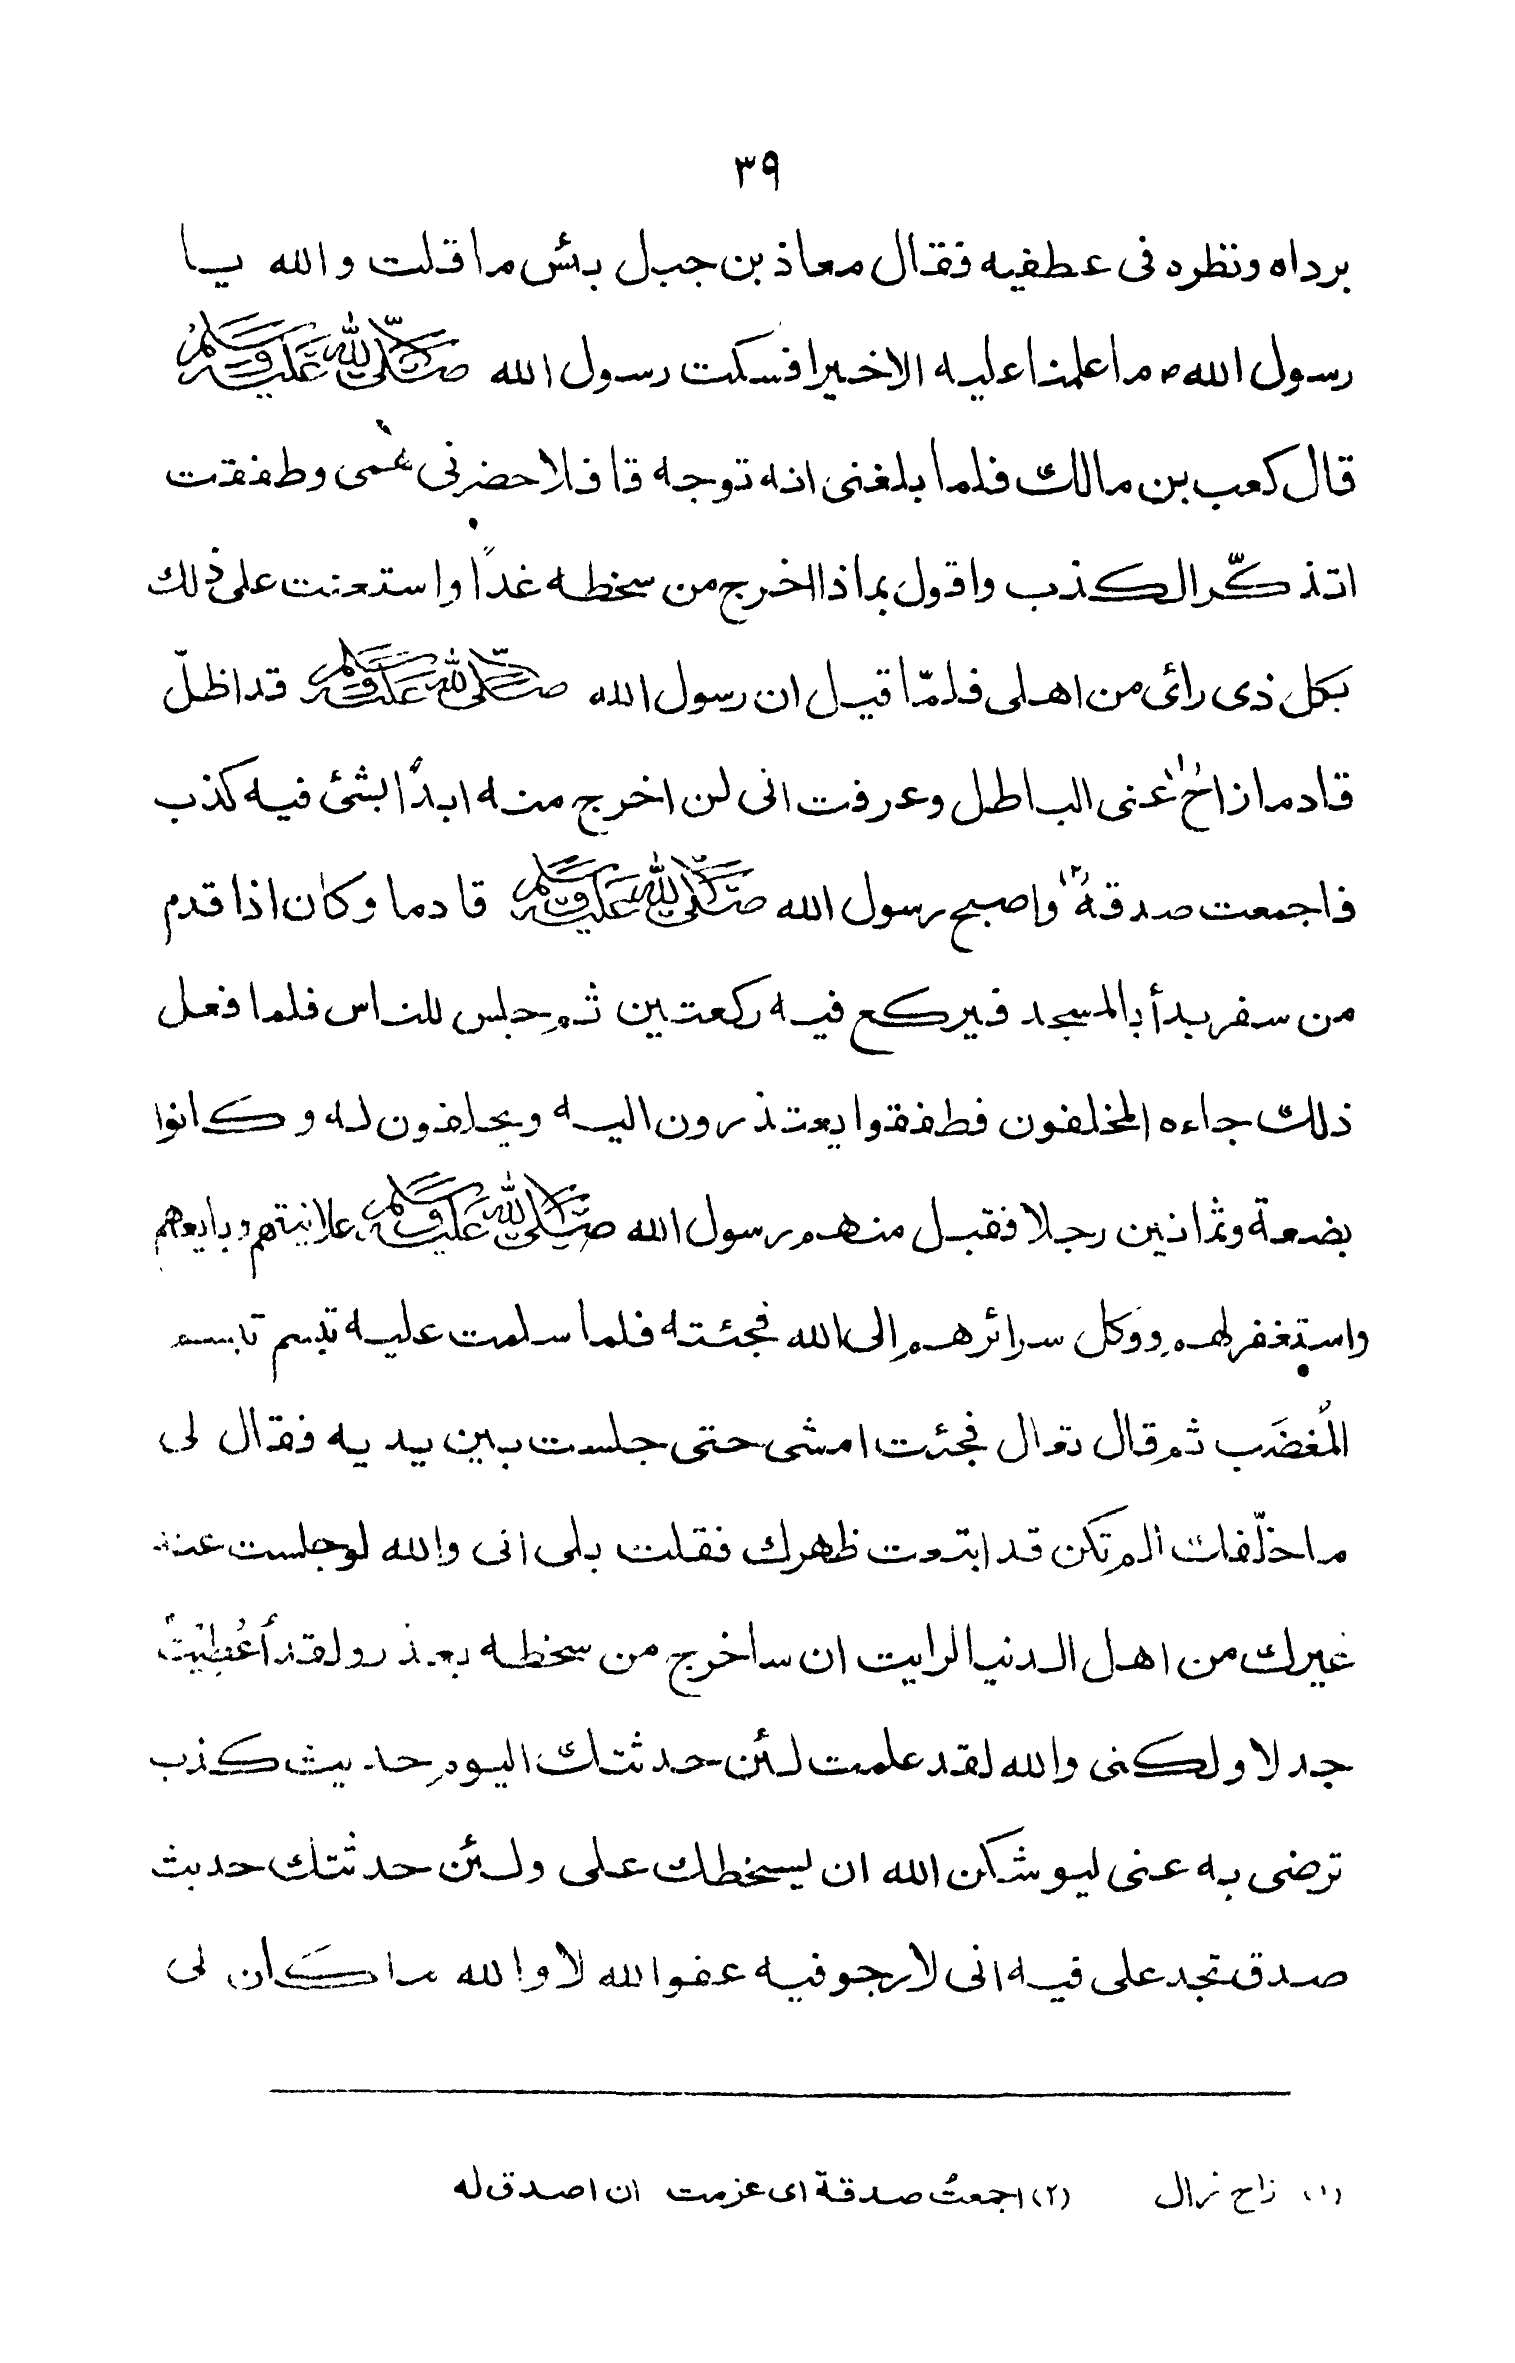 ٣٩
برداه ونظره فى عطفيه فقال معاذ بن جبل بئس ما قلت والله يا
رسول الله ص ما علمنا عليه الا خيرا فسكت رسول الله صلى الله عليه وسلم
قال كعب بن مالك فلما بلغنى انه توجه قافلا حضرنى غمى وطفقت
اتذكّر الكذب واقول بماذا اخرج من سخطه غدًا واستعنت على ذلك
بكل ذى رائ من اهلى فلمّا قيل ان رسول الله صلى الله عليه وسلم قد اظلّ
قادما زاح (١) عنى الباطل وعرفت انى لن اخرج منه ابدًا بشئ فيه كذب
فاجمعت صدقهٗ (٢) واصبح رسول الله صلى الله عليه وسلم قادما وكان اذا قدم
من سفر بدأ بالمسجد فيركع فيه ركعتين ثم جلس للناس فلما فعل
ذلك جاءه المخلفون فطفقوا يعتذرون اليه ويحلفون له وكانوا
بضعة وثمانين رجلا فقبل منهم رسول الله صلى الله عليه وسلم علانيتهم وبايعهم
واستغفر لهم ووكل سرائرهم الى الله فجئته فلما سلمت عليه تبسم تبسم
المُغضَب ثم قال تعال فجئت امشى حتى جلست بين يديه فقال لى
ما خلّفك الم تكن قد ابتعت ظهرك فقلت بلى انى والله لو جلست عند
غيرك من اهل الدنيا لرايت ان ساخرج من سخطه بعذر ولقد أُعْطِيْتُ
جدلا ولكنى والله لقد علمت لئن حدثتك اليوم حديث كذب
ترضى به عنى ليوشكن الله ان يسخطك على ولئن حدثتك حديث
صدق تجد على فيه انى لارجو فيه عفو الله لا والله ما كان لى
(١) زاح زال (٢) اجمعتُ صدقة اى عزمت ان اصدق له